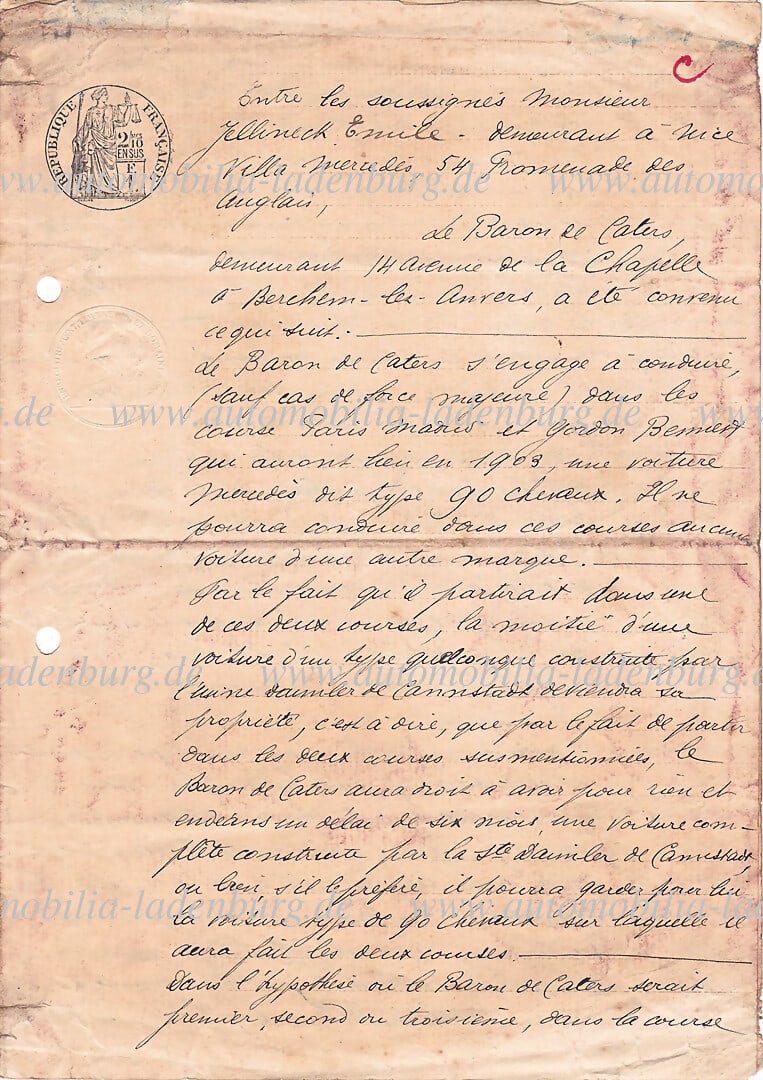 C
RÉPUBLIQUE FRANÇAISE
2 fres
10
EN SUS
Entre les soussignés Monsieur
Jellineck Emile - demeurant à Nice
Villa Mercedès 54 Promenade des
Anglais,
Le Baron de Caters,
demeurant 14 avenue de la Chapelle
à Berchem-les-Anvers, a été convenu
ce qui suit.-
Le Baron de Caters s'engage à conduire,
(sauf cas de force majeure) dans les
course Paris Madrid et Gordon Bennett
qui auront lieu en 1903, une voiture
Mercedès dit type 90 chevaux. Il ne
pourra conduire dans ces courses aucune
voiture d'une autre marque.
Par le fait qu'il partirait dans une
de ces deux courses, la moitié d'une
voiture d'un type quelconque construite par
l'usine Daimler de Cannstadt deviendra sa
propriété, c'est à dire, que par le fait de partir
dans les deux courses susmentionnées, le
Baron de Caters aura droit à avoir pour rien et
endéans un délai de six mois, une voiture com-
plète construite par la Sté Daimler de Cannstadt,
ou bien s'il le préfère, il pourra garder pour lui
la voiture type de 90 chevaux sur laquelle il
aura fait les deux courses.
Dans l'hypothèse où le Baron de Caters serait
premier, second ou troisième, dans la course
www.automobilia-ladenburg.de
www.automobilia-ladenburg.de
www.automobilia-ladenburg.de
www.automobilia-ladenburg.de